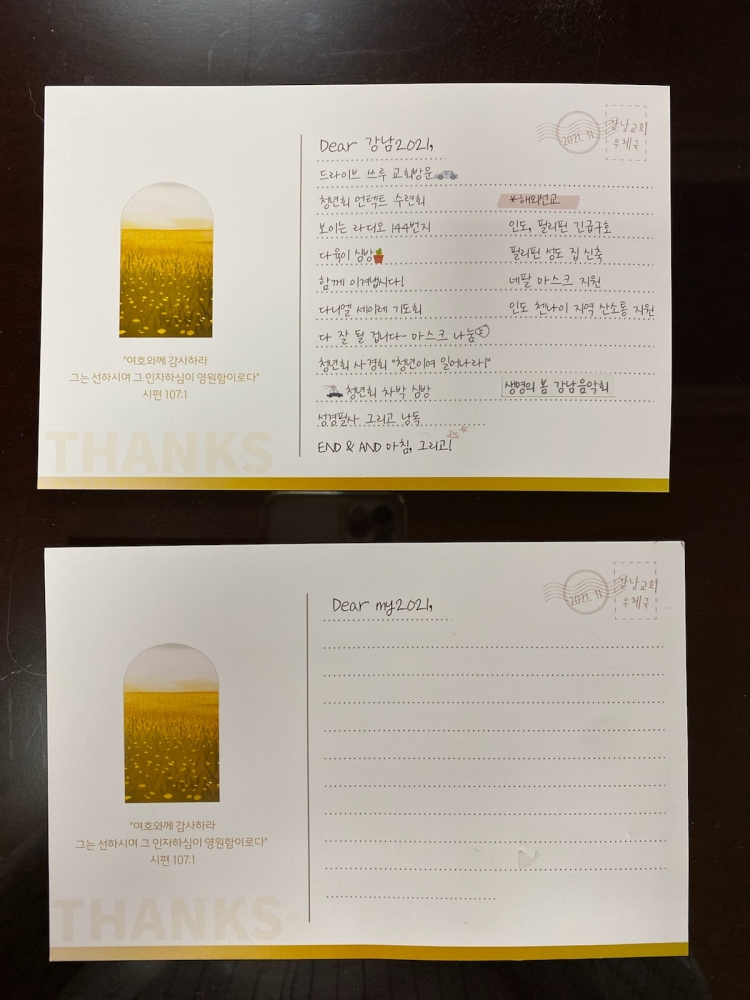 Dear 강남2021,
드라이브 쓰루 교회방문
청년회 언택트 수련회
보이는 라디오 144번지
다육이 심방
함께 이겨냅시다!
다니엘 세이레 기도회
다 잘 될 겁니다- 마스크 나눔
청년회 사경회 "청년이여 일어나라!"
청년회 차박 심방
성경필사 그리고 낭독
END & AND 아침, 그리고!
*해외선교
인도, 필리핀 긴급구호
필리핀 성도 집 신축
네팔 마스크 지원
인도 첸나이 지역 산소통 지원
생명의 봄 강남음악회
2021. 11
강남교회
우체국
"여호와께 감사하라
그는 선하시며 그 인자하심이 영원함이로다"
시편 107:1
THANKS
Dear my2021,
2021. 11
강남교회
우체국
"여호와께 감사하라
그는 선하시며 그 인자하심이 영원함이로다"
시편 107:1
THANKS